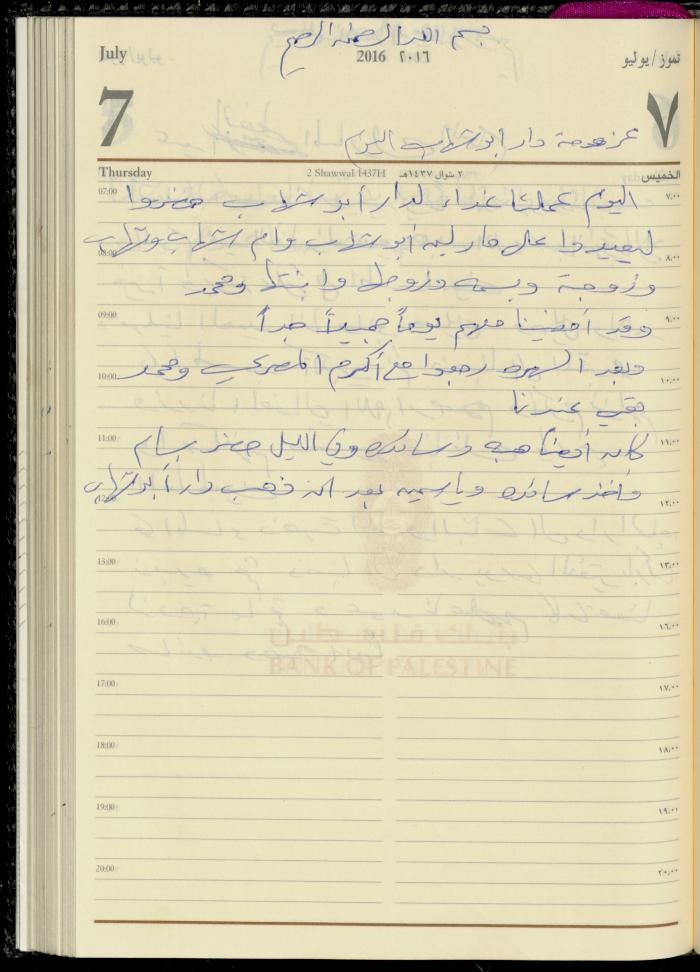 بسم الله الرحمن الرحيم
July 2016 ٢٠١٦ تموز / يوليو
7 ٧
عزومة دار أبو شهاب اليوم
Thursday 2 Shawwal 1437H ٢ شوال ١٤٣٧هـ الخميس
07:00 اليوم عملنا غداء لدار أبو شهاب حضروا ٧,٠٠
08:00 ليعيدوا على مارليه أبو شهاب وام شهاب وشهاب ٨,٠٠
وزوجة وبسمه وزوجها وابنتها ومحمد
09:00 وقد أمضينا معهم يوماً جميلاً جداً ٩,٠٠
10:00 وبعد السهره رجعوا مع أكرم المصري ومحمد ١٠,٠٠
بقي عندنا
11:00 كان أيضاً هبه وسائده وفي الليل حضر بسام ١١,٠٠
12:00 وأخذ سائده وياسمين بعد ان ذهب دار أبو شهاب ١٢,٠٠
13:00 ١٣,٠٠
16:00 ١٦,٠٠
بنك فلسطين
BANK OF PALESTINE
17:00 ١٧,٠٠
18:00 ١٨,٠٠
19:00 ١٩,٠٠
20:00 ٢٠,٠٠